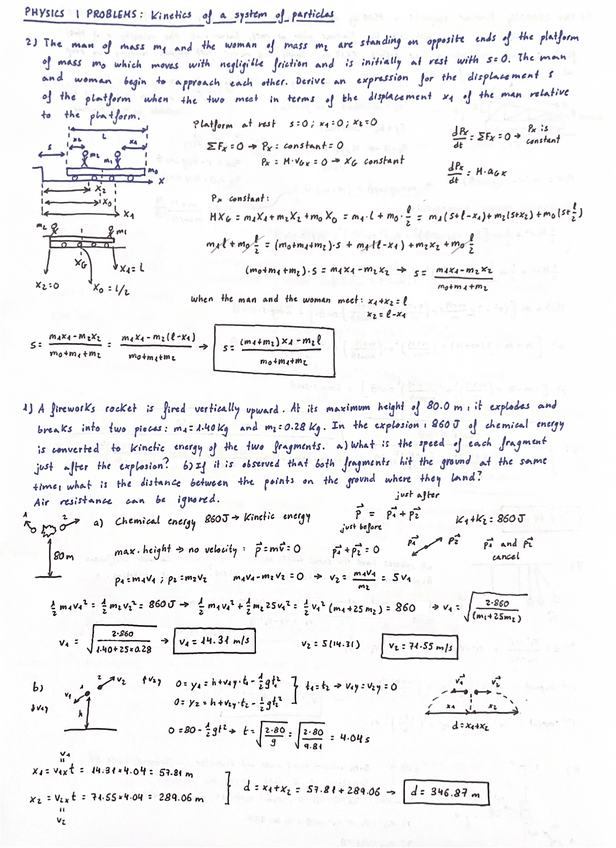 PHYSICS 1 PROBLEMS: Kinetics of a system of particles
2) The man of mass m1 and the woman of mass m2 are standing on opposite ends of the platform
of mass m0 which moves with negligible friction and is initially at rest with s=0. The man
and woman begin to approach each other. Derive an expression for the displacement s
of the platform when the two meet in terms of the displacement x1 of the man relative
to the platform.
Platform at rest s=0; x1=0; x2=0
ΣFx=0 → Px=constant=0
Px = M·vGx = 0 → XG constant
dPx/dt = ΣFx=0 → Px is constant
dPx/dt = M·aGx
L
x2 x1
s m2 m1 m0
x
X2
X0
X1
m2 m1
XG X1=L
X2=0 X0=l/2
Px constant:
MXG = m1X1+m2X2+m0X0 = m1·l+m0·l/2 = m1(s+l-x1)+m2(s+x2)+m0(s+l/2)
m1l+m0·l/2 = (m0+m1+m2)·s+m1(l-x1)+m2x2+m0l/2
(m0+m1+m2)·s = m1x1-m2x2 → s = (m1x1-m2x2)/(m0+m1+m2)
when the man and the woman meet: x1+x2=l
x2=l-x1
s = (m1x1-m2x2)/(m0+m1+m2) = (m1x1-m2(l-x1))/(m0+m1+m2) → s = ((m1+m2)x1-m2l)/(m0+m1+m2)
1) A fireworks rocket is fired vertically upward. At its maximum height of 80.0 m, it explodes and
breaks into two pieces: m1=1.40 Kg and m2=0.28 Kg. In the explosion, 860 J of chemical energy
is converted to kinetic energy of the two fragments. a) What is the speed of each fragment
just after the explosion? b) If it is observed that both fragments hit the ground at the same
time, what is the distance between the points on the ground where they land?
Air resistance can be ignored.
1 2
80m
a) Chemical energy 860J → Kinetic energy
just after
p = p1+p2
just before
K1+K2=860J
max. height → no velocity: p=mv=0
p1+p2=0
p1 p2
p1 and p2 cancel
p1=m1v1; p2=m2v2 m1v1-m2v2=0 → v2= m1v1/m2 = 5v1
1/2 m1v1² = 1/2 m2v2² = 860J → 1/2 m1v1²+1/2 m2 25v1² = 1/2 v1²(m1+25m2) = 860 → v1 = √(2·860/(m1+25m2))
v1 = √(2·860/(1.40+25×0.28)) → v1=14.31 m/s v2=5(14.31) v2=71.55 m/s
b)
1 2 v2 ↑v2y
v1
↓v1y
h
0=y1=h+v1y·t1-1/2gt1²
0=y2=h+v2y·t2-1/2gt2²
t1=t2 → v1y=v2y=0
0=80-1/2gt² → t=√(2·80/g)=√(2·80/9.81)=4.04s
v1 v2
x1 x2
d=x1+x2
v1
x1=v1xt = 14.31×4.04=57.81 m
x2=v2xt = 71.55×4.04=289.06 m
v2
d=x1+x2=57.81+289.06 → d=346.87 m